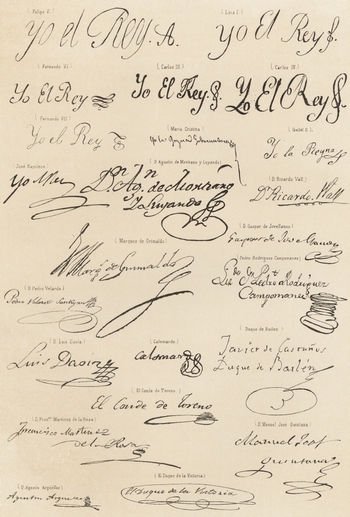 ( Felipe V. )
( Luis I. )
Yo el Rey.
Yo El Rey
( Fernando VI )
( Carlos III )
( Carlos IV )
Yo El Rey
Yo El Rey
Yo El Rey
( Fernando VII )
( Maria Cristina )
( Isabel II )
Yo el Rey
Yo la Reyna
( José Napoleon )
( D Agustin de Montiano y Luyando )
( D Ricardo Wall )
Yo
D.n Ag.n de Montiano
y Luyando
D. Ricardo Wall
( Marques de Grimaldi )
( D Gaspar de Jovellanos )
Marq.s de Grimaldi
Gaspar de
( D Pedro Velarde )
( Pedro Rodriguez Campomanes )
Pedro Velarde
Pedro Rodriguez
Campomanes
( D Luis Daoiz )
( Calomarde )
( Duque de Bailen )
Luis Daoiz
Calomarde
Javier de Castaños
Duque de Bailén
( El Conde de Toreno )
El Conde de Toreno
Martinez de la Rosa )
( D Manuel José Quintana )
Francisco Martinez
de la Rosa
Manuel Josef
Quintana
( D Agustin Argüelles )
( El Duque de la Victoria )
Agustin Arguelles
El Duque de la Victoria